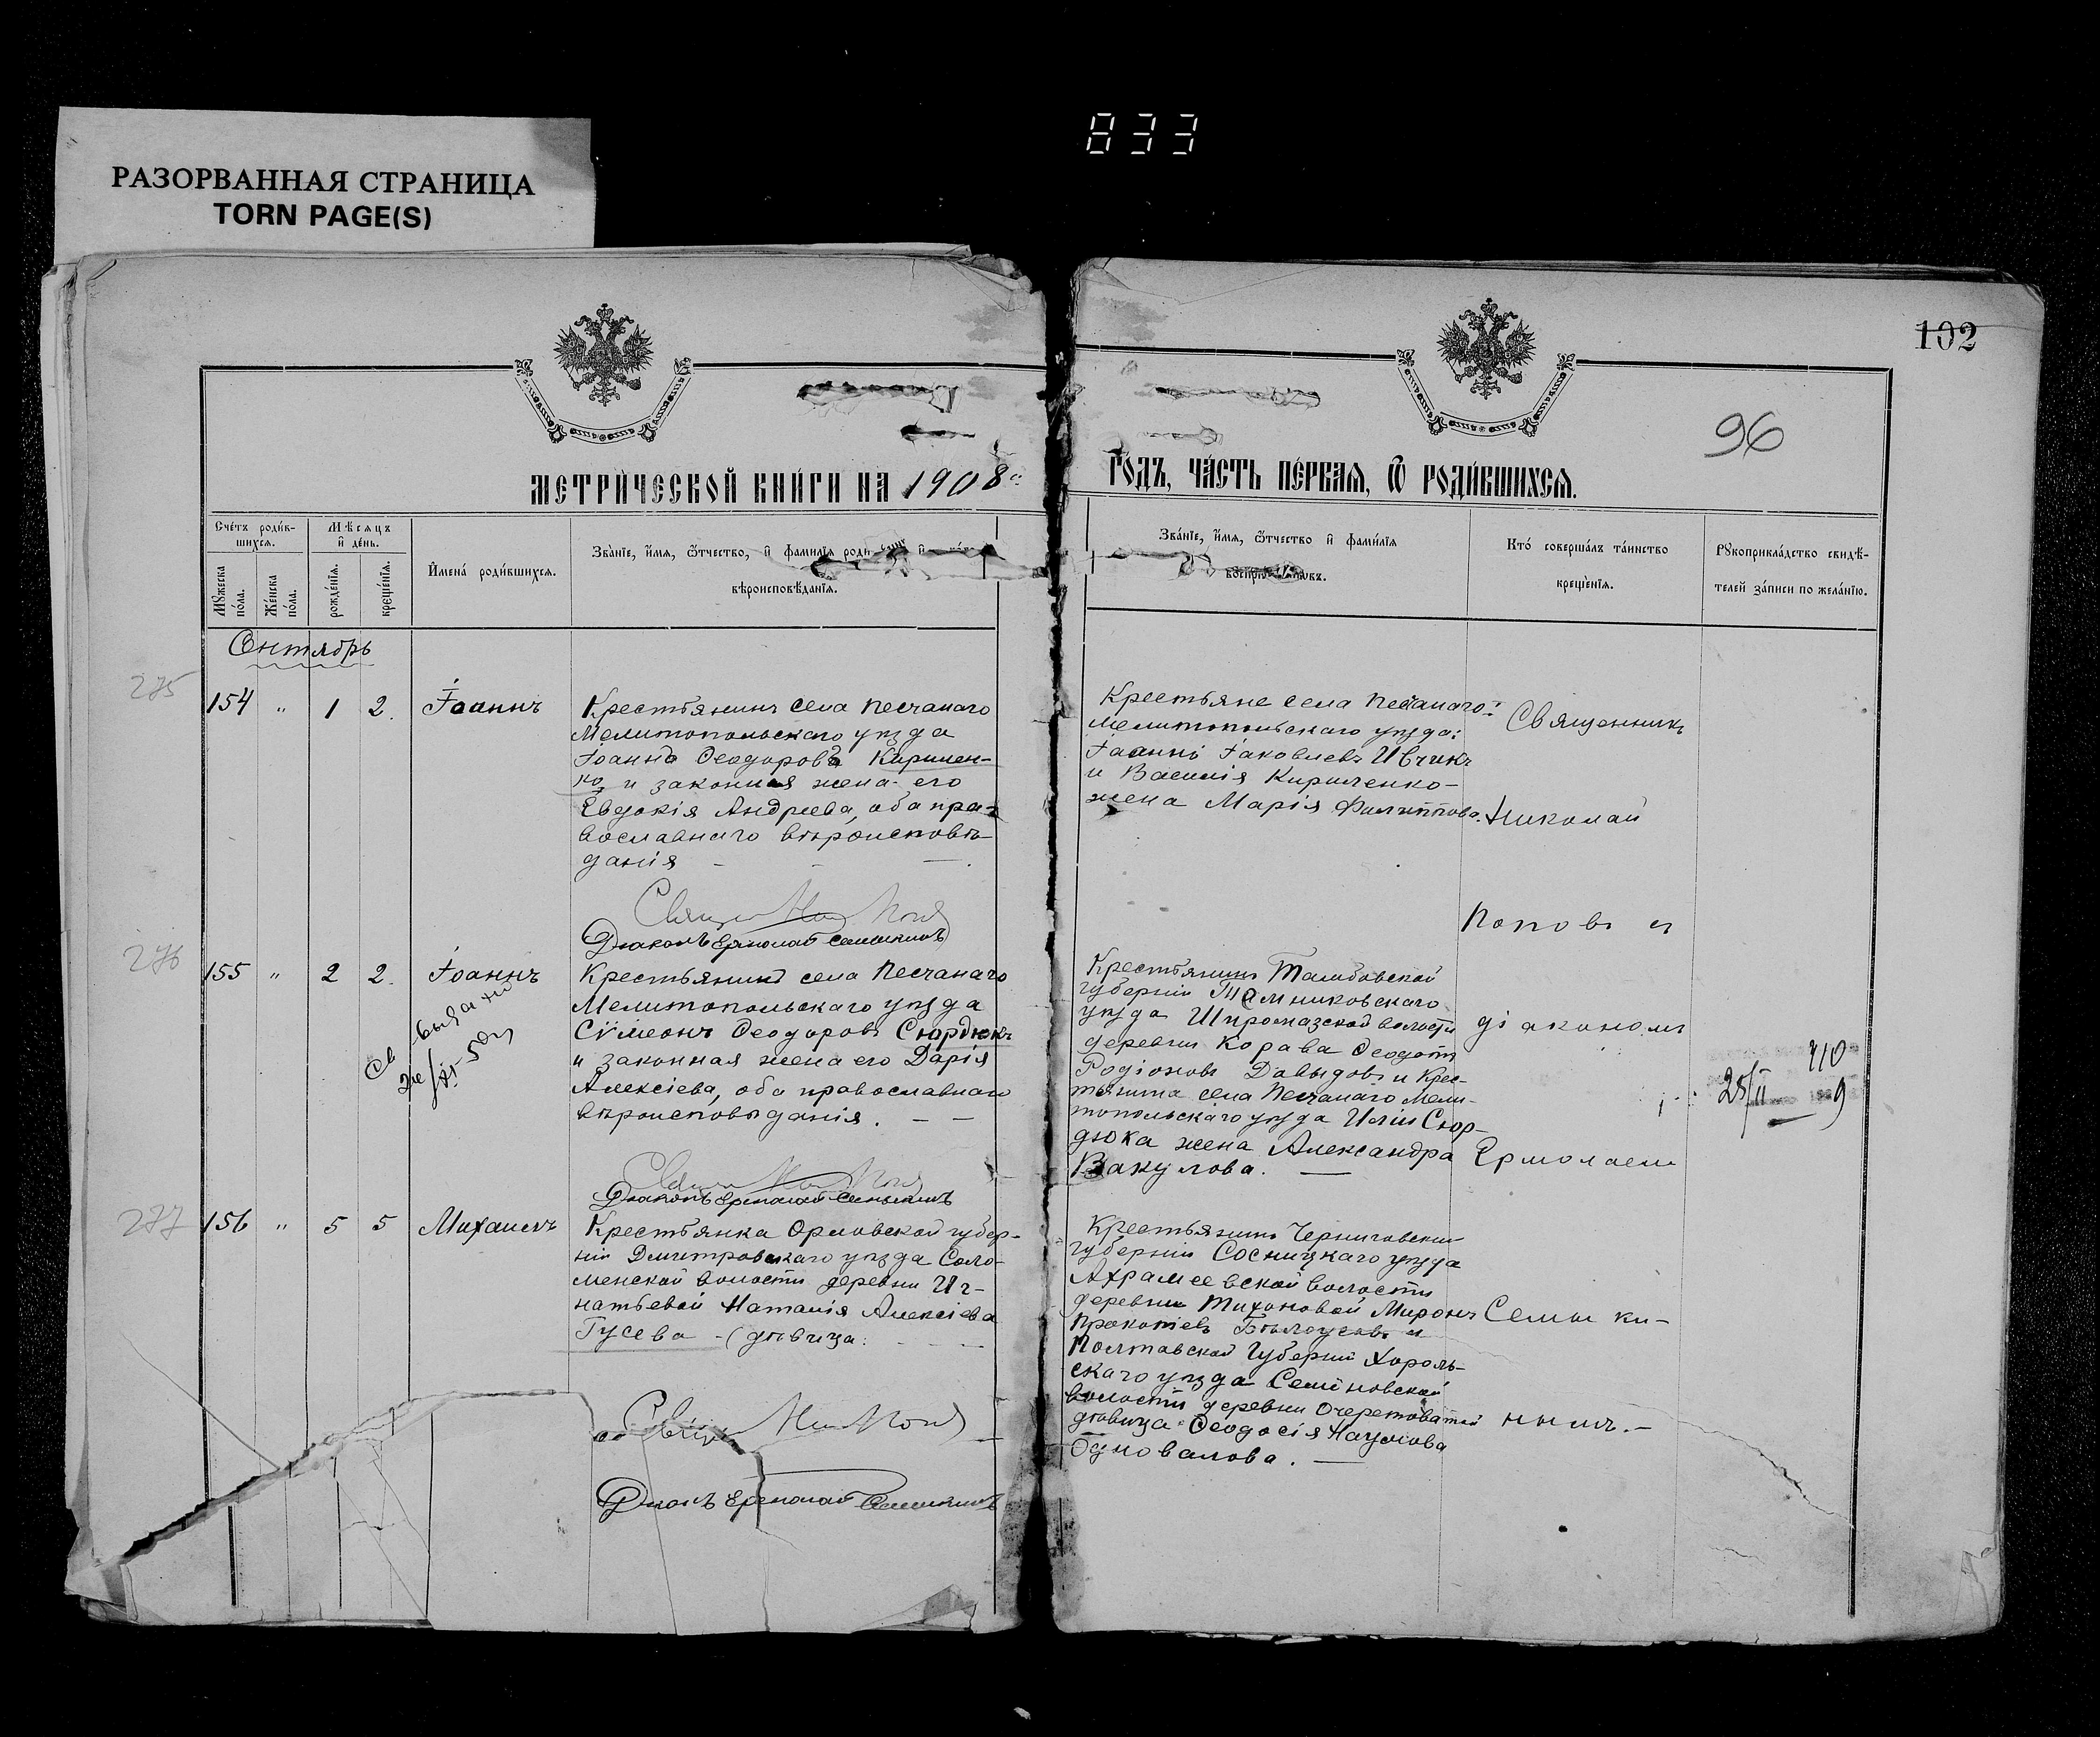 833
РАЗОРВАННАЯ СТРАНИЦА
TORN PAGE(S)
102
96
МЕТРИЧЕСКОЙ КНИГИ НА 1908
ГОДЪ, ЧАСТЬ ПЕРВАЯ, Ѿ РОДИВШИХСЯ.
Счетъ родив-
шихся.
Мѣсяцъ
и день.
Мужеска
пола.
Женска
пола.
рожденія.
крещенія.
Имена родившихся.
Званіе, имя, ѿтчество, и фамилія роди
вѣроисповѣданія.
Званіе, имя, ѿтчество и фамилія
Кто совершалъ таинство
крещенія.
Рукоприкладство свидѣ-
телей записи по желанію.
Октябрь
275
154 " 1 2. Іоаннъ
Крестьянинъ села Песчанаго
Мелитопольскаго уѣзда
Іоаннъ Ѳеодоровъ Кирилен-
ко и законная жена его
Евдокія Андреева, оба пра-
вославнаго вѣроисповѣ-
данія
Діаконъ Ермолай Семыкинъ
Крестьяне села Песчанаго
Мелитопольскаго уѣзда:
Іоаннъ Іаковлевъ Ивчикъ
и Василія Кириленко-
жена Марія Филиппова.
Священникъ
Николай
Поповъ и
276
155 " 2 2. Іоаннъ
Крестьянинъ села Песчанаго
Мелитопольскаго уѣзда
Сѵмеонъ Ѳеодоровъ Сюрдюкъ
и законная жена его Дарія
Алексіева, оба православнаго
вѣроисповѣданія.
Діаконъ Ермолай Семыкинъ
Крестьянинъ Тамбовской
губерніи Темниковскаго
уѣзда волости
деревни Корава Ѳеодотъ
Родіоновъ Давыдовъ и Крес-
тьянина села Песчанаго Мели-
топольскаго уѣзда Иліи Сюр-
дюка жена Александра
Вакулова.
діакономъ
Ермолаемъ
25/II 9
277
156 " 5 5 Михаилъ
Крестьянка Орловской губер-
ніи Дмитровскаго уѣзда Соло-
менской волости деревни Иг-
натьевой Наталія Алексіева
Гусева - (дѣвица.
Діаконъ Ермолай Семыкинъ
Крестьянинъ Черниговской
губерніи Сосницкаго уѣзда
волости
деревни Тихоновой Миронъ
Прокопіевъ Бѣлоусовъ и
Полтавской губерніи Хороль-
скаго уѣзда Семеновской
волости деревни Очеретоватой
дѣвица Ѳеодосія Наумова
Одновалова.
Семы ки-
нымъ.-